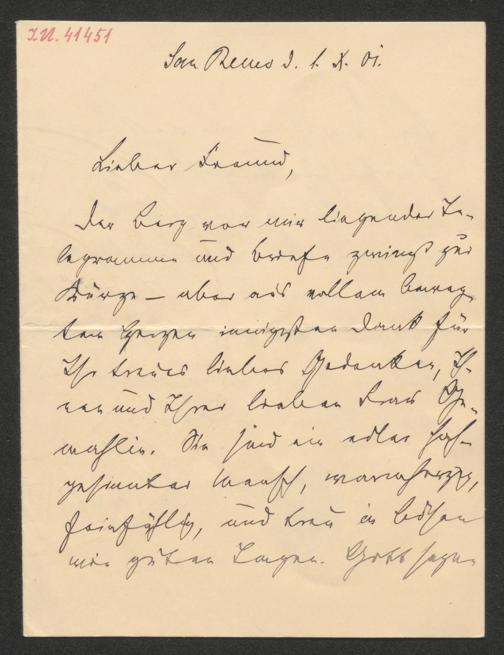 I.N. 41451
San Remo d. 1. X. 01.
Lieber Freund,
Der Berg vor mir liegender Te-
legramme und Briefe zwingt zur
Kürze – aber aus vollem beweg-
ten Herzen innigsten Dank für
Ihr treues liebes Gedenken, Ih-
nen und Ihrer lieben Frau Ge-
mahlin. Sie sind ein edler hoch-
gesinnter Mensch, warmherzig,
feinfühlig, und treu in bösen
wie guten Tagen. Gott segne